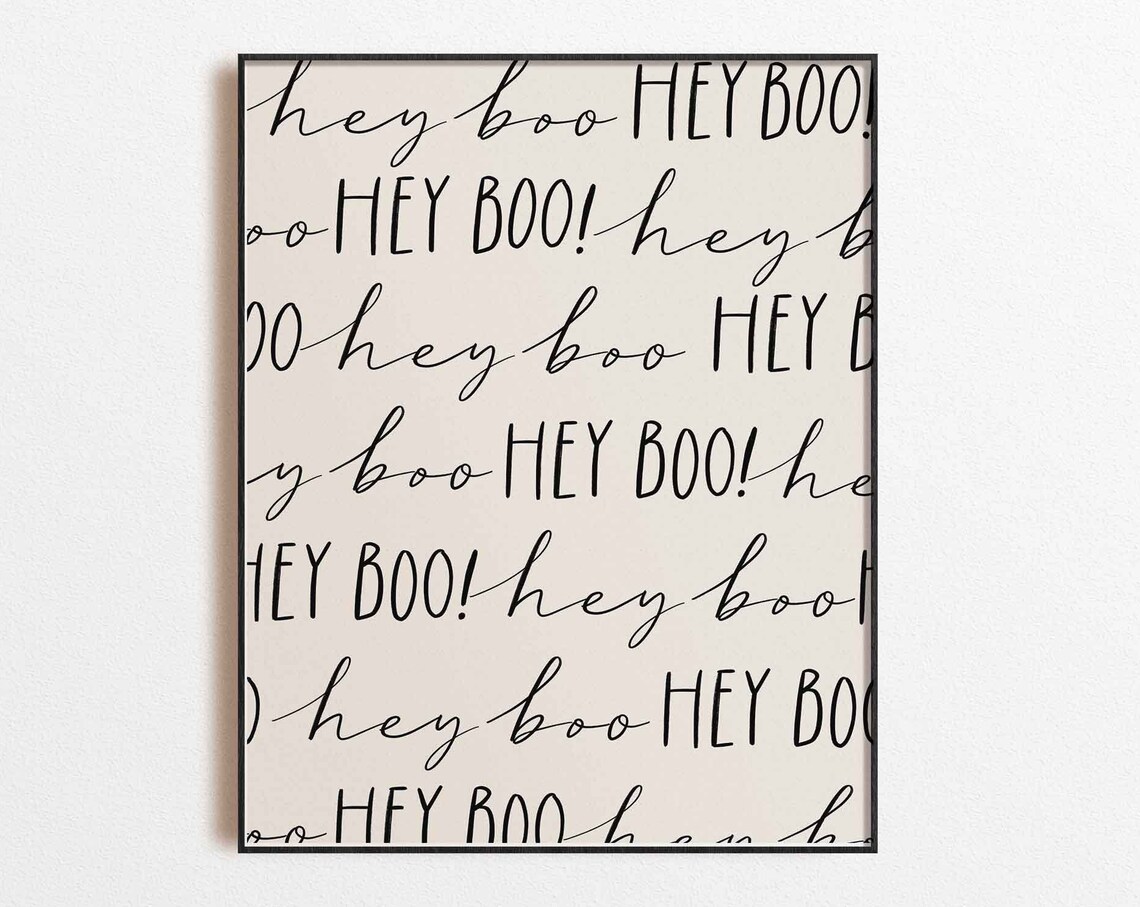 hey boo HEY BOO!
oo HEY BOO! hey b
OO hey boo HEY B
y boo HEY BOO! he
HEY BOO! hey boo H
O hey boo HEY BOO
oo HEY BOO hey bo